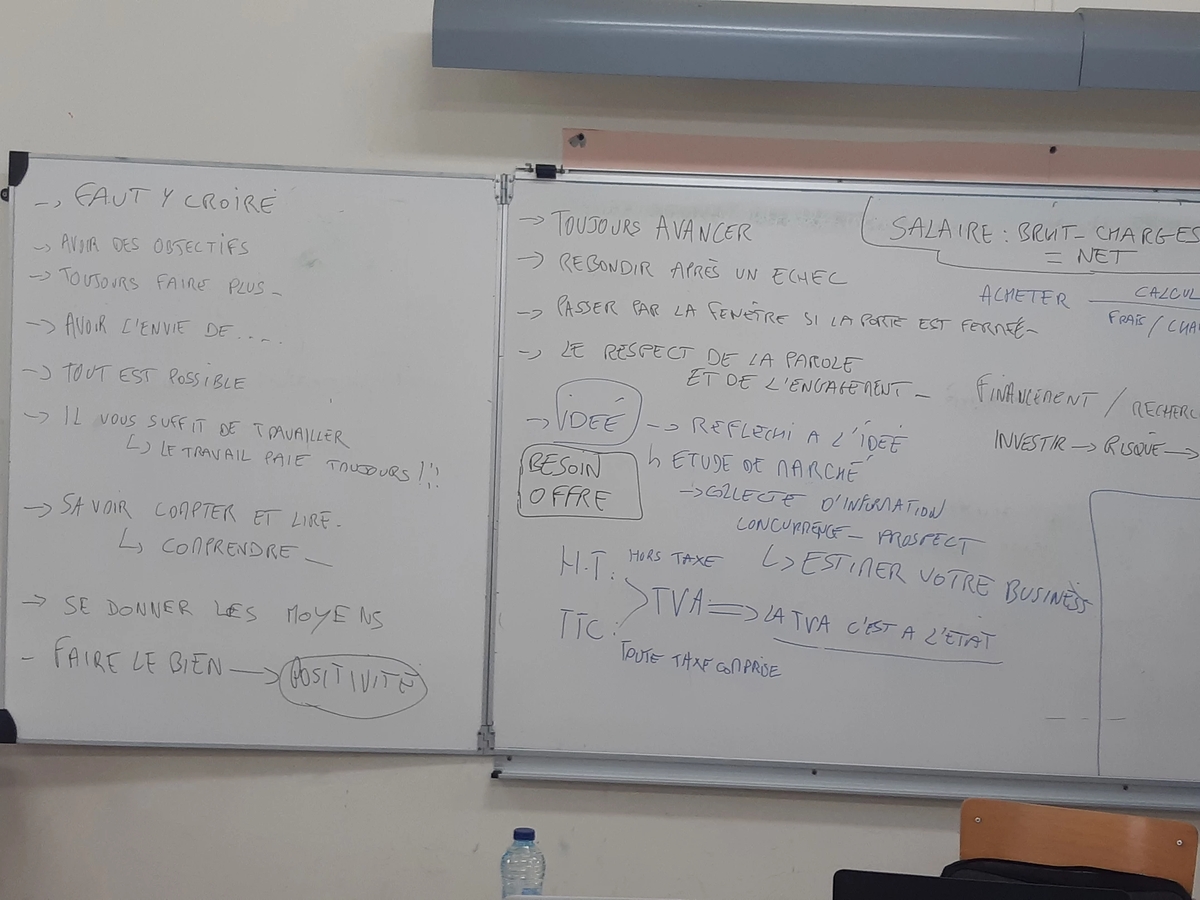 -> FAUT Y CROIRE
-> AVOIR DES OBJECTIFS
-> TOUJOURS FAIRE PLUS_
-> AVOIR L'ENVIE DE .....
-> TOUT EST POSSIBLE
-> IL VOUS SUFFIT DE TRAVAILLER
↳ LE TRAVAIL PAIE TOUJOURS !!!
-> SAVOIR COMPTER ET LIRE.
↳ COMPRENDRE_
-> SE DONNER LES MOYENS
- FAIRE LE BIEN -> POSITIVITÉ
-> TOUJOURS AVANCER
-> REBONDIR APRÈS UN ECHEC
-> PASSER PAR LA FENÊTRE SI LA PORTE EST FERMÉE_
-> LE RESPECT DE LA PAROLE
ET DE L'ENGAGEMENT_
-> IDEÉ -> REFLECHI A L'IDEÉ
BESOIN
OFFRE
↳ ETUDE DE MARCHÉ
-> COLLECTE D'INFORMATION
CONCURRENCE_ PROSPECT
↳ ESTIMER VOTRE BUSINESS
H.T: HORS TAXE
TVA => LA TVA C'EST A L'ETAT
TTC:
TOUTE TAXE COMPRISE
SALAIRE : BRUT_CHARGES
= NET
ACHETER CALCUL
FRAIS /
FINANCEMENT / RECHERC
INVESTIR -> RISQUE ->